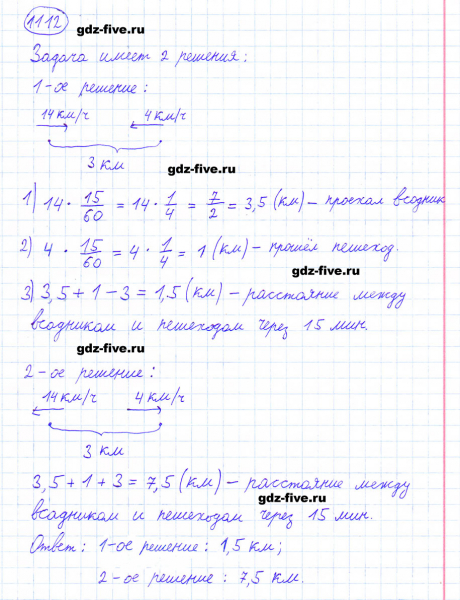 1112
gdz-five.ru
Задача имеет 2 решения:
1-ое решение:
14 км/ч 4 км/ч
3 км
gdz-five.ru
1) 14 · 15/60 = 14 · 1/4 = 7/2 = 3,5 (км) – проехал всадник
2) 4 · 15/60 = 4 · 1/4 = 1 (км) – прошёл пешеход.
gdz-five.ru
3) 3,5 + 1 – 3 = 1,5 (км) – расстояние между
всадником и пешеходом через 15 мин.
gdz-five.ru
2-ое решение:
14 км/ч 4 км/ч
3 км
3,5 + 1 + 3 = 7,5 (км) – расстояние между
gdz-five.ru
всадником и пешеходом через 15 мин.
Ответ: 1-ое решение: 1,5 км;
2-ое решение: 7,5 км.
gdz-five.ru